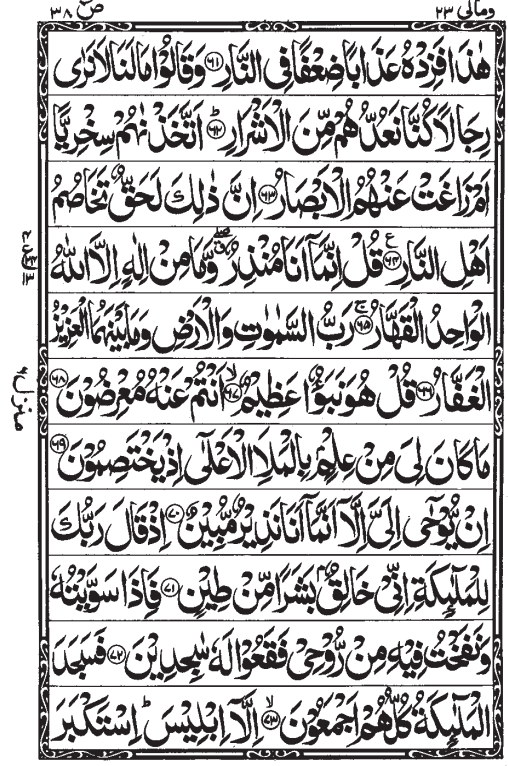 ومالی ۲۳
صٓ ۳۸
هٰذَا فَزِدْهُ عَذَابًا ضِعْفًا فِی النَّارِ ﴿۶۱﴾ وَقَالُوْا مَا لَنَا لَا نَرٰی
رِجَالًا كُنَّا نَعُدُّهُمْ مِّنَ الْاَشْرَارِ ؕ﴿۶۲﴾ اَتَّخَذْنٰهُمْ سِخْرِیًّا
اَمْ زَاغَتْ عَنْهُمُ الْاَبْصَارُ ﴿۶۳﴾ اِنَّ ذٰلِكَ لَحَقٌّ تَخَاصُمُ
اَهْلِ النَّارِ ﴿۶۴﴾ قُلْ اِنَّمَاۤ اَنَا مُنْذِرٌ وَّمَا مِنْ اِلٰهٍ اِلَّا اللّٰهُ
الْوَاحِدُ الْقَهَّارُ ۚ﴿۶۵﴾ رَبُّ السَّمٰوٰتِ وَالْاَرْضِ وَمَا بَیْنَهُمَا الْعَزِیْزُ
الْغَفَّارُ ﴿۶۶﴾ قُلْ هُوَ نَبَؤٌا عَظِیْمٌ ۙ﴿۶۷﴾ اَنْتُمْ عَنْهُ مُعْرِضُوْنَ ﴿۶۸﴾
مَا كَانَ لِیَ مِنْ عِلْمٍۭ بِالْمَلَاِ الْاَعْلٰۤی اِذْ یَخْتَصِمُوْنَ ﴿۶۹﴾
اِنْ یُّوْحٰۤی اِلَیَّ اِلَّاۤ اَنَّمَاۤ اَنَا نَذِیْرٌ مُّبِیْنٌ ﴿۷۰﴾ اِذْ قَالَ رَبُّكَ
لِلْمَلٰٓىِٕكَةِ اِنِّیْ خَالِقٌۢ بَشَرًا مِّنْ طِیْنٍ ﴿۷۱﴾ فَاِذَا سَوَّیْتُهٗ
وَنَفَخْتُ فِیْهِ مِنْ رُّوْحِیْ فَقَعُوْا لَهٗ سٰجِدِیْنَ ﴿۷۲﴾ فَسَجَدَ
الْمَلٰٓىِٕكَةُ كُلُّهُمْ اَجْمَعُوْنَ ۙ﴿۷۳﴾ اِلَّاۤ اِبْلِیْسَ ؕ اِسْتَكْبَرَ
منزل ۶